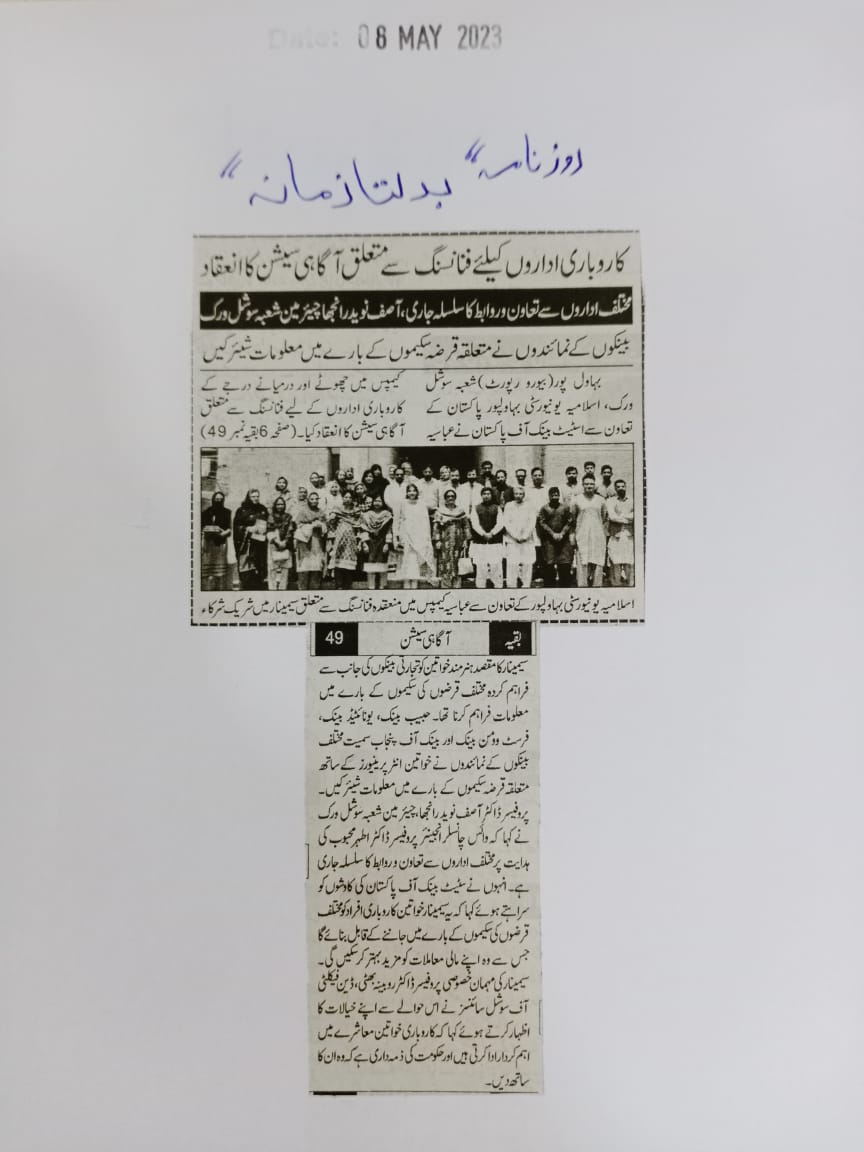 Date: 08 MAY 2023
روزنامہ "بدلتا زمانہ"
کاروباری اداروں کیلئے فنانسنگ سے متعلق آگاہی سیشن کا انعقاد
مختلف اداروں سے تعاون و روابط کا سلسلہ جاری، آصف نوید رانجھا چیئرمین شعبہ سوشل ورک
بینکوں کے نمائندوں نے متعلقہ قرضہ سکیموں کے بارے میں معلومات شیئر کیں
بہاول پور (بیورو رپورٹ) شعبہ سوشل
ورک، اسلامیہ یونیورسٹی بہاولپور پاکستان کے
تعاون سے اسٹیٹ بینک آف پاکستان نے عباسیہ
کیمپس میں چھوٹے اور درمیانے درجے کے
کاروباری اداروں کے لیے فنانسنگ سے متعلق
آگاہی سیشن کا انعقاد کیا۔ (صفحہ 6 بقیہ نمبر 49)
اسلامیہ یونیورسٹی بہاولپور کے تعاون سے عباسیہ کیمپس میں منعقدہ فنانسنگ سے متعلق سیمینار میں شریک شرکاء
بقیہ آگاہی سیشن 49
سیمینار کا مقصد ہنر مند خواتین کو تجارتی بینکوں کی جانب سے
فراہم کردہ مختلف قرضوں کی سکیموں کے بارے میں
معلومات فراہم کرنا تھا۔ حبیب بینک، یونائیٹڈ بینک،
فرسٹ وومن بینک اور بینک آف پنجاب سمیت مختلف
بینکوں کے نمائندوں نے خواتین انٹرپرینیورز کے ساتھ
متعلقہ قرضہ سکیموں کے بارے میں معلومات شیئر کیں۔
پروفیسر ڈاکٹر آصف نوید رانجھا، چیئرمین شعبہ سوشل ورک
نے کہا کہ وائس چانسلر انجینئر پروفیسر ڈاکٹر اطہر محبوب کی
ہدایت پر مختلف اداروں سے تعاون و روابط کا سلسلہ جاری
ہے۔ انہوں نے سٹیٹ بینک آف پاکستان کی کاوشوں کو
سراہتے ہوئے کہا کہ یہ سیمینار خواتین کاروباری افراد کو مختلف
قرضوں کی سکیموں کے بارے میں جاننے کے قابل بنائے گا
جس سے وہ اپنے مالی معاملات کو مزید بہتر کر سکیں گی۔
سیمینار کی مہمان خصوصی پروفیسر ڈاکٹر روبینہ بھٹی، ڈین فیکلٹی
آف سوشل سائنسز نے اس حوالے سے اپنے خیالات کا
اظہار کرتے ہوئے کہا کہ کاروباری خواتین معاشرے میں
اہم کردار ادا کرتی ہیں اور حکومت کی ذمہ داری ہے کہ وہ ان کا
ساتھ دیں۔